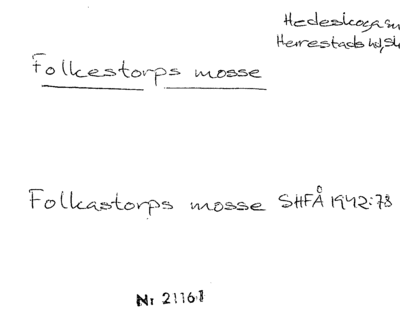 Hedeskoga sn
Herrestads hd, Sk
Folkestorps mosse
Folkastorps mosse SHFÅ 1942:78
Nr 21161